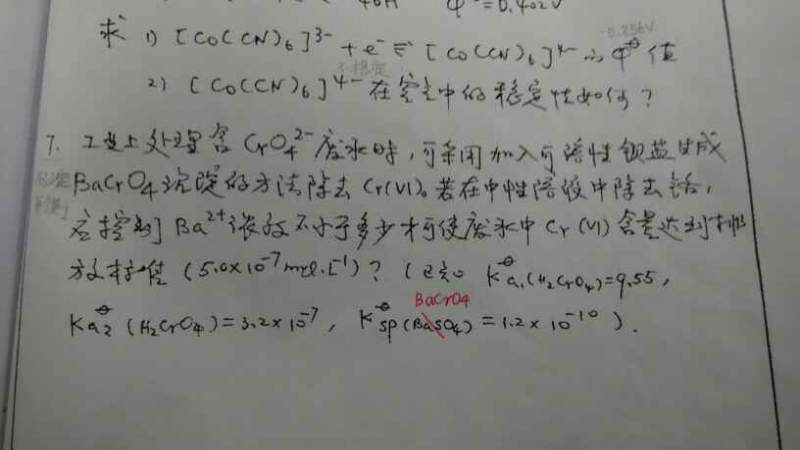 φ⊖=0.402V
-0.256V
求 1) [Co(CN)6]3- + e- ⇌ [Co(CN)6]4- 的φ⊖值
不稳定
2) [Co(CN)6]4- 在空气中的稳定性如何?
7. 工业上处理含CrO4^2-废水时,可采用加入可溶性钡盐生成
BaCrO4沉淀的方法除去Cr(VI)。若在中性溶液中除去铬,
应控制Ba2+浓度不小于多少才可使废水中Cr(VI)含量达到排
放标准值(5.0×10^-7 mol·L^-1)?(已知 Ka1⊖(H2CrO4)=9.55,
BaCrO4
Ka2⊖(H2CrO4)=3.2×10^-7, K⊖sp(BaSO4)=1.2×10^-10).